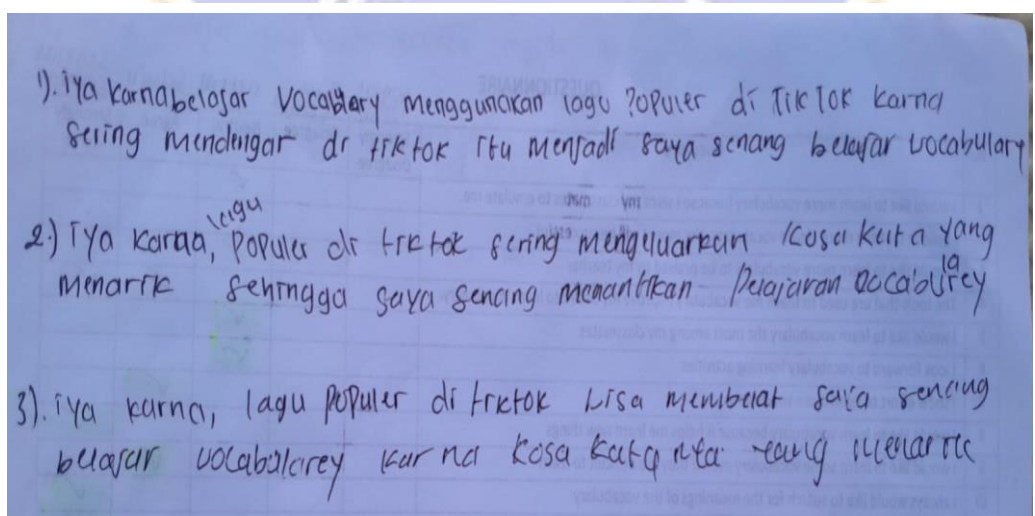 1). iya karna belajar vocablery menggunakan lagu Populer di TikTok karna
sering mendengar di tiktok itu menjadi saya senang belajar vocabulary
2.) iya karna, lagu populer di tiktok sering mengeluarkan kosa kata yang
menarik sehingga saya sencing menantikan Pelajaran vocabularey
3). iya karna, lagu populer di tiktok bisa membuat saya sencing
belajar vocabularey karna kosa kata nya yang menarik